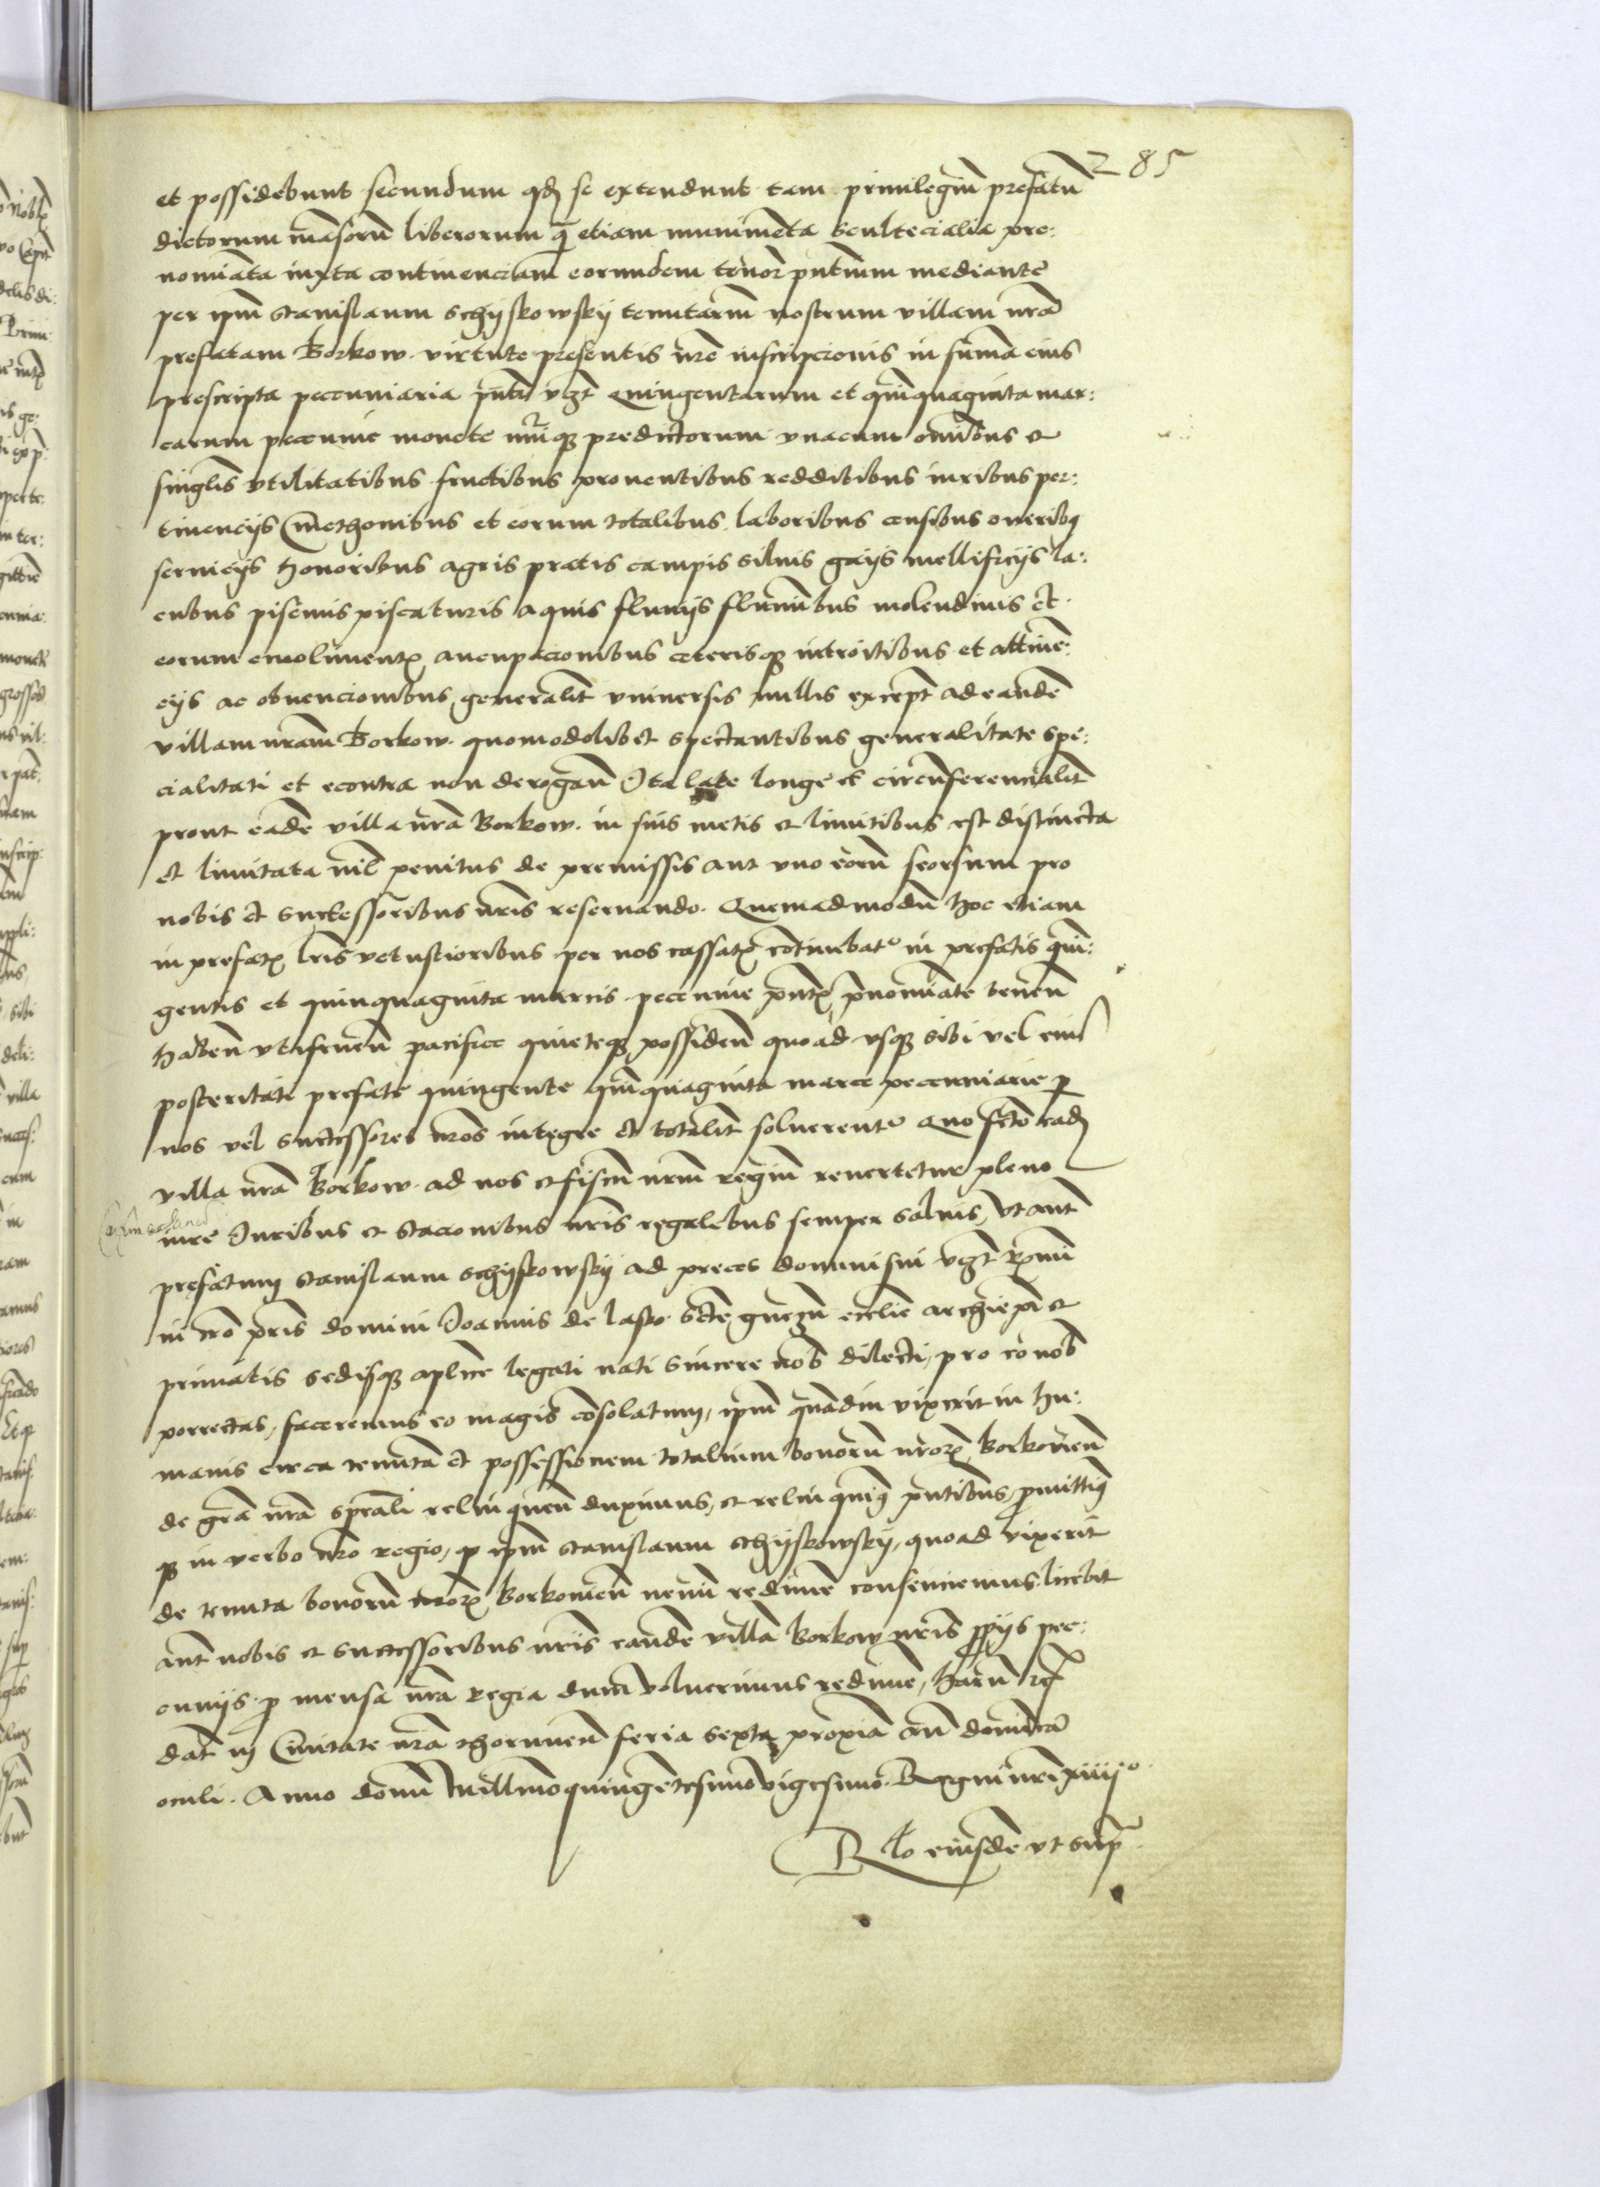 285
et possidebunt secundum qd se extendunt tam privilegiu prefatu
dictorum mansoru liberorum q etiam munimeta scultecialia pre:
nomiata iuxta continenciam eorundem tenor pntium mediante
per ipm Stanislaum Schyskowsky tenutariu nostrum villam nram
prefatam Borkow virtute presentis nre inscripcionis in suma eius
prescripta pecuniaria pnti vzt Quingentarum et quinquaginta mar:
carum pecunie monete nuiq predictorum vnacum omibus et
singlis vtilitatibus fructibus proventibus redditibus iuribus per:
tinencijs Cmethonibus et eorum totalibus laboribus censibus oneribq
servicijs honoribus agris pratis campis silvis gaijs mellificijs la:
cubus piscinis piscaturis aquis fluvijs fluminibus molendinis et
eorum emolimentz aucupacionibus ceterisqz introitibus et attine:
cijs ac obvencionibus generalit vniversis nullis except ad eande
villam nram Borkow quomodolibet spectantibus generalitate spe:
cialitati et econtra non derogan Ita late longe et circuferencialit
prout eade villa nra Borkow in suis metis et limitibus est distincta
et limitata nil penitus de premissis aut vno eoru seorsum pro
nobis et successoribus nris reservando. Quemadmodu hoc etiam
in prefatz lris vetustioribus per nos cassatz cotinebat in prefatis quin:
gentis et quinquaginta marcis pecunie pntz pnomiate tenen
haben vtifruen pacifice quieteqz possiden quoad vsqz sibi vel eius
posteritati prefate quingente quinquaginta marce pecuniarie p
nos vel successores nros integre et totalit solverent Quo fcto eade
villa nra Borkow ad nos et fiscu nrm regiu revertetur pleno
iure Iuribus et stacionibus nris regalibus semper salvis, Vt aut
prefatum Stanislaum Schyskowsky ad preces domini sui vzt Rxmi
in xro pris domini Ioannis de Lasko Scte gnezn ecclie archiepi et
primatis sedisqz aplice legati nati sincere nob dilecti, pro eo nob
porrectas, faceremus eo magis cosolatum, ipm quadiu vixerit in hu:
manis circa tenuta et possessionem totalium bonoru nrorz Borkovien
de gra nra spcali relinquen duximus, et relinquimq pntibus, pmittiq
qz in verbo nro regio, q ipm Stanislaum Schyskowsky, quoad vixerit
de tenuta bonoru nrorz Borkovien nemi redime consenciemus, licebit
aut nobis et successoribus nris eande villa Borkow nris ppijs pec:
cunijs p mensa nra regia dum voluerimus redime, Haru rc
Dat in Civitate nra Thorunien feria sexta proxia an dominica
oculi. Anno domi Millmoquingetesimovigesimo. Regni nri xiiij°
Rlo eiusde vt supr